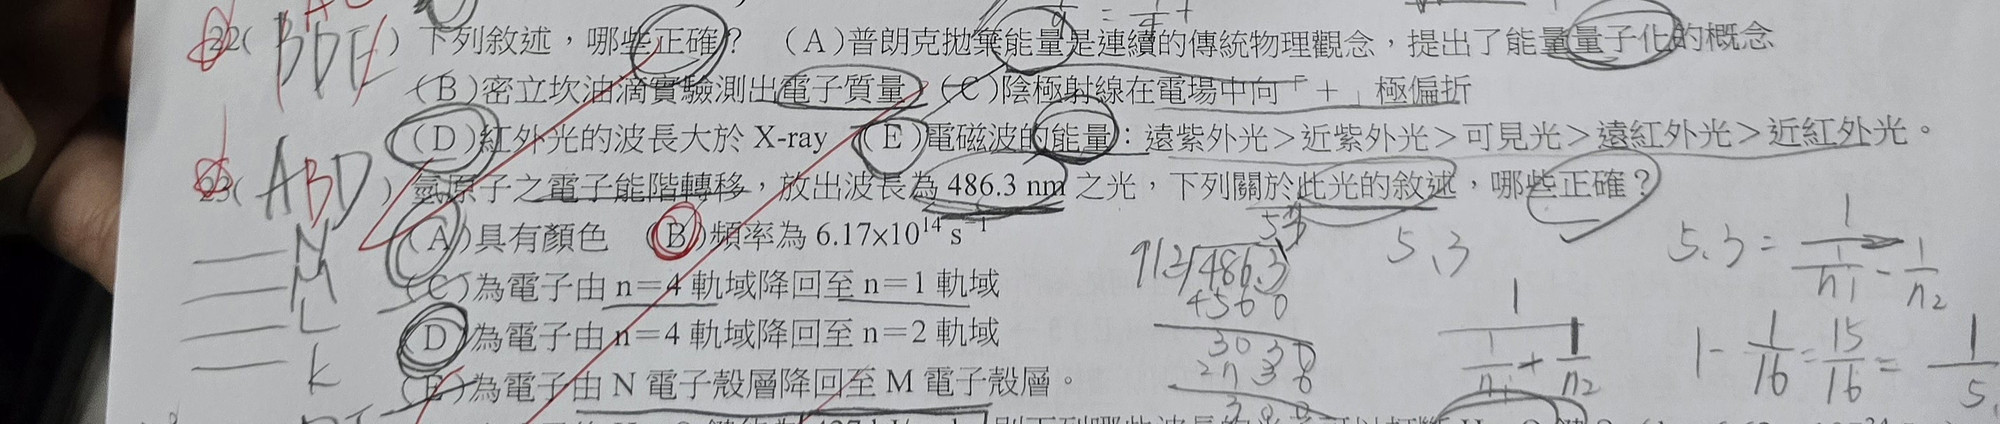 22( BDE ) 下列敘述，哪些正確？ (A)普朗克拋棄能量是連續的傳統物理觀念，提出了能量量子化的概念
(B)密立坎油滴實驗測出電子質量 (C)陰極射線在電場中向「+」極偏折
(D)紅外光的波長大於 X-ray (E)電磁波的能量：遠紫外光＞近紫外光＞可見光＞遠紅外光＞近紅外光。
23( ABD ) 氫原子之電子能階轉移，放出波長為 486.3 nm 之光，下列關於此光的敘述，哪些正確？
(A)具有顏色 (B)頻率為 6.17×10¹⁴ s⁻¹
(C)為電子由 n＝4 軌域降回至 n＝1 軌域
(D)為電子由 n＝4 軌域降回至 n＝2 軌域
(E)為電子由 N 電子殼層降回至 M 電子殼層。
N
M
L
K
912 486.3
4560
5.3
5.3 = 1/(1/n₁ - 1/n₂)
1/(1/n₁ + 1/n₂)
1 - 1/16 = 15/16 =